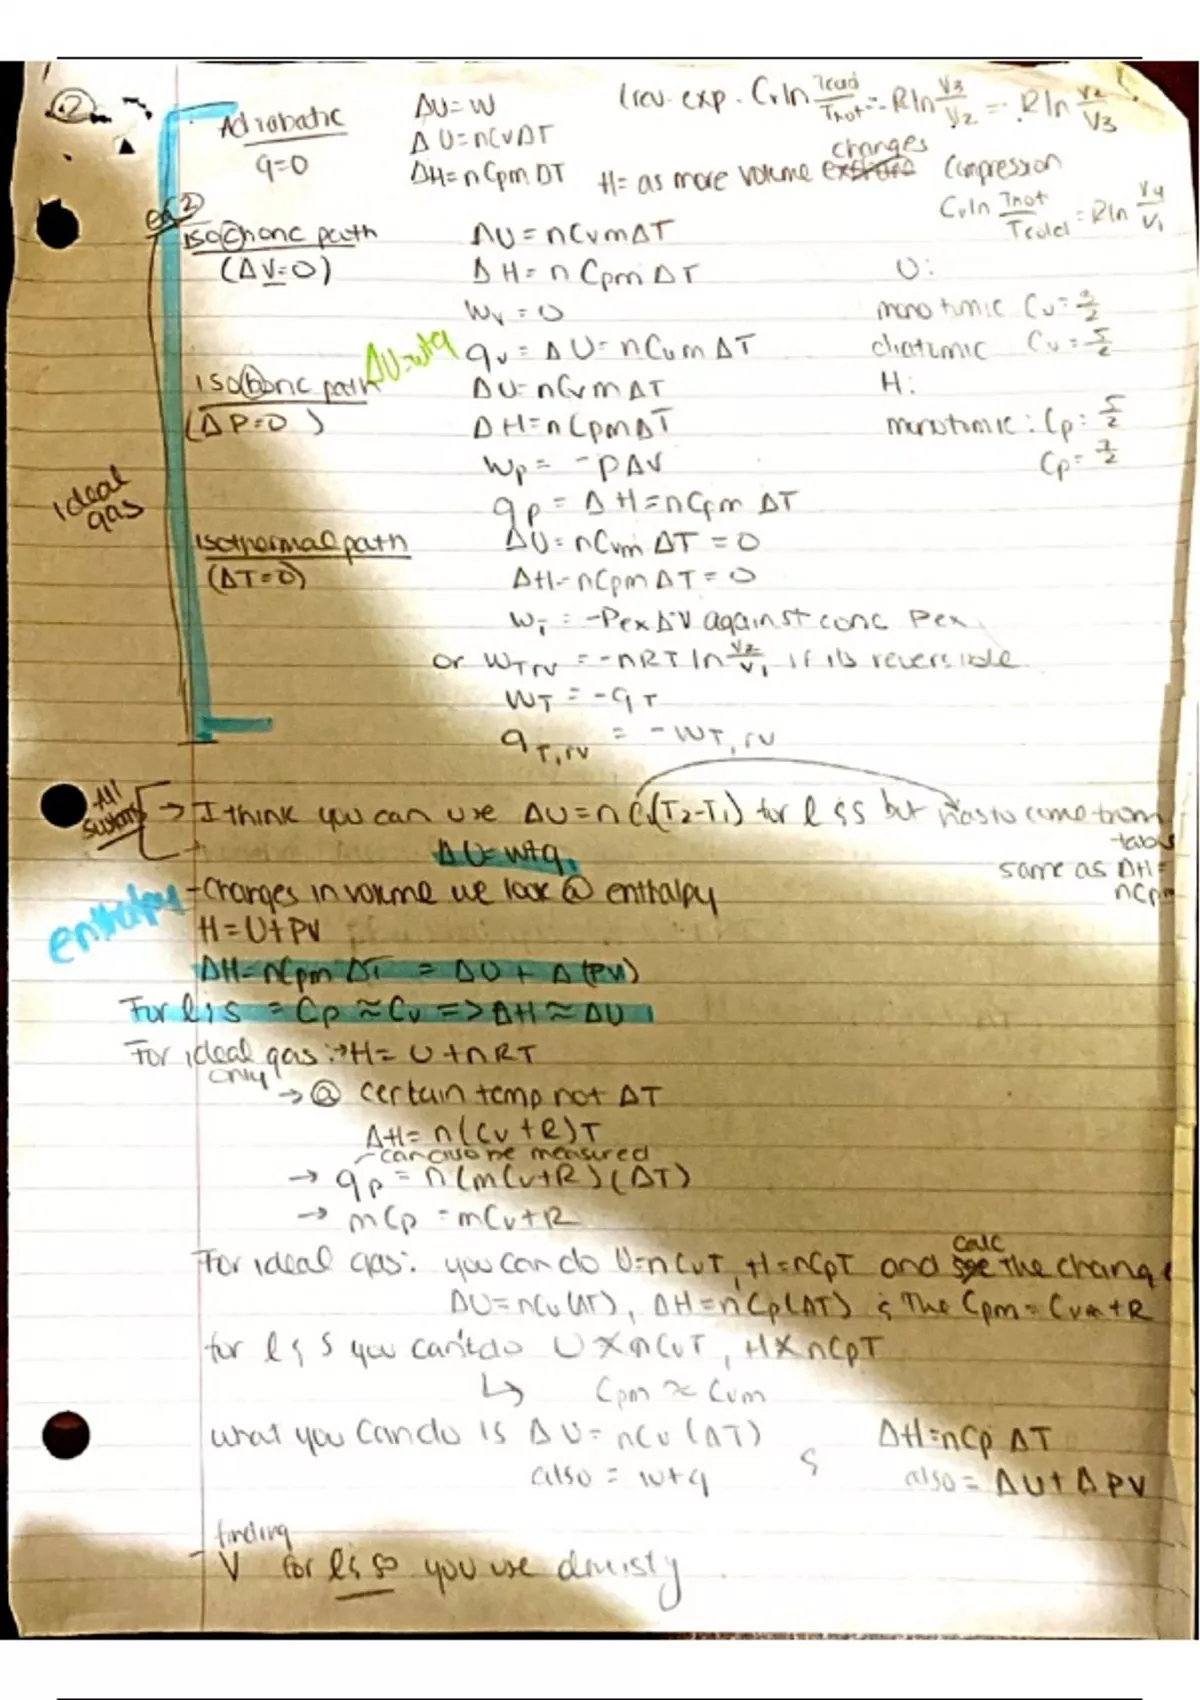 2
Adiabatic
q=0
ΔU=W
ΔU=nCvΔT
ΔH=nCpmΔT
(rev. exp. Cvln Tcold/Thot = -Rln V3/V2 = Rln V2/V3
H= as more volume changes
compression
Cvln Thot/Tcold = Rln V4/V1
isochoric path
(ΔV=0)
ΔU=nCvmΔT
ΔH=nCpmΔT
Wv=0
qv=ΔU=nCvmΔT
ΔU=w+q
U:
monotimic Cv=3/2
diatumic Cv=5/2
H:
monotomic: Cp=5/2
Cp=7/2
isobaric path
(ΔP=0)
ΔU=nCvmΔT
ΔH=nCpmΔT
Wp=-PΔV
qp=ΔH=nCpmΔT
ideal
gas
isothermal path
(ΔT=0)
ΔU=nCvmΔT=0
ΔH=nCpmΔT=0
WT=-PexΔV against conc Pex
or WTrv=-nRT ln V2/V1 if its reversible
WT=-qT
qT,rv=-WT,rv
All
systems
→ I think you can use ΔU=nCv(T2-T1) for l & s but has to come from
table
same as ΔH=
nCpm
ΔU=w+q
enthalpy
-Changes in volume we look @ enthalpy
H=U+PV
ΔH=nCpmΔT=ΔU+Δ(PV)
For l & s = Cp≈Cv=>ΔH≈ΔU
For ideal gas:→H=U+nRT
only
→@ certain temp not ΔT
ΔH=n(Cv+R)T
can also be measured
→ qp=n(mCv+R)(ΔT)
→ mCp=mCv+R
For ideal gas: you can do U=nCvT, H=nCpT and calc the change
ΔU=nCv(ΔT), ΔH=nCp(ΔT) & The Cpm=Cvm+R
for l & s you can't do U≠nCvT, H≠nCpT
↳ Cpm≈Cvm
what you can do is ΔU=nCv(ΔT) & ΔH=nCpΔT
also=w+q also=ΔU+ΔPV
finding
- V for l & so you use density